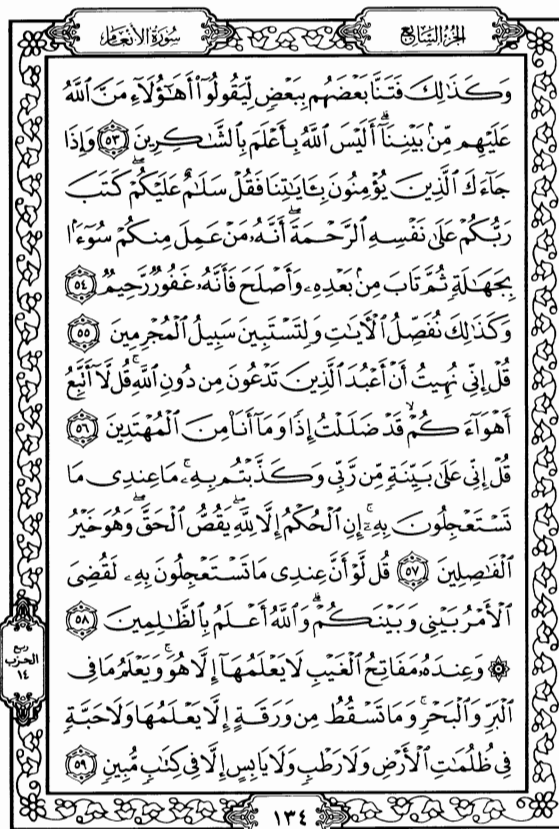 سُورَةُ الأَنعَام
الجُزءُ السَّابِع
وَكَذَٰلِكَ فَتَنَّا بَعْضَهُم بِبَعْضٍ لِّيَقُولُوٓا۟ أَهَٰٓؤُلَآءِ مَنَّ ٱللَّهُ
عَلَيْهِم مِّنۢ بَيْنِنَآ ۗ أَلَيْسَ ٱللَّهُ بِأَعْلَمَ بِٱلشَّٰكِرِينَ ٥٣ وَإِذَا
جَآءَكَ ٱلَّذِينَ يُؤْمِنُونَ بِـَٔايَٰتِنَا فَقُلْ سَلَٰمٌ عَلَيْكُمْ ۖ كَتَبَ
رَبُّكُمْ عَلَىٰ نَفْسِهِ ٱلرَّحْمَةَ ۖ أَنَّهُۥ مَنْ عَمِلَ مِنكُمْ سُوٓءًۢا
بِجَهَٰلَةٍ ثُمَّ تَابَ مِنۢ بَعْدِهِۦ وَأَصْلَحَ فَأَنَّهُۥ غَفُورٌ رَّحِيمٌ ٥٤
وَكَذَٰلِكَ نُفَصِّلُ ٱلْءَايَٰتِ وَلِتَسْتَبِينَ سَبِيلُ ٱلْمُجْرِمِينَ ٥٥
قُلْ إِنِّى نُهِيتُ أَنْ أَعْبُدَ ٱلَّذِينَ تَدْعُونَ مِن دُونِ ٱللَّهِ ۚ قُل لَّآ أَتَّبِعُ
أَهْوَآءَكُمْ ۙ قَدْ ضَلَلْتُ إِذًا وَمَآ أَنَا۠ مِنَ ٱلْمُهْتَدِينَ ٥٦
قُلْ إِنِّى عَلَىٰ بَيِّنَةٍ مِّن رَّبِّى وَكَذَّبْتُم بِهِۦ ۚ مَا عِندِى مَا
تَسْتَعْجِلُونَ بِهِۦٓ ۚ إِنِ ٱلْحُكْمُ إِلَّا لِلَّهِ ۖ يَقُصُّ ٱلْحَقَّ ۖ وَهُوَ خَيْرُ
ٱلْفَٰصِلِينَ ٥٧ قُل لَّوْ أَنَّ عِندِى مَا تَسْتَعْجِلُونَ بِهِۦ لَقُضِىَ
ٱلْأَمْرُ بَيْنِى وَبَيْنَكُمْ ۗ وَٱللَّهُ أَعْلَمُ بِٱلظَّٰلِمِينَ ٥٨
۞ وَعِندَهُۥ مَفَاتِحُ ٱلْغَيْبِ لَا يَعْلَمُهَآ إِلَّا هُوَ ۚ وَيَعْلَمُ مَا فِى
ٱلْبَرِّ وَٱلْبَحْرِ ۚ وَمَا تَسْقُطُ مِن وَرَقَةٍ إِلَّا يَعْلَمُهَا وَلَا حَبَّةٍ
فِى ظُلُمَٰتِ ٱلْأَرْضِ وَلَا رَطْبٍ وَلَا يَابِسٍ إِلَّا فِى كِتَٰبٍ مُّبِينٍ ٥٩
ربع
الحزب
١٤
١٣٤